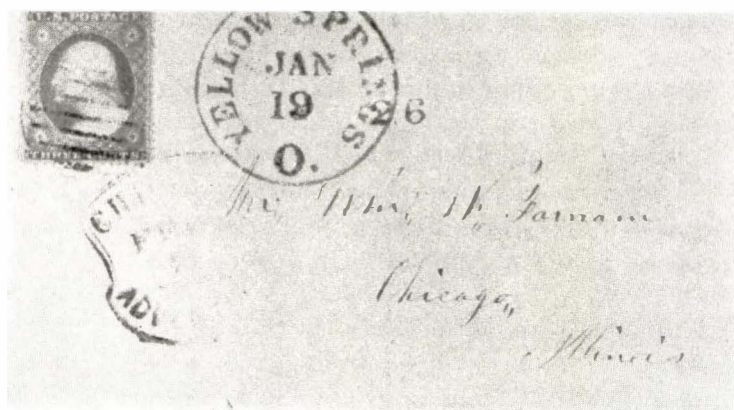 U.S. POSTAGE
THREE CENTS
YELLOW SPRINGS
JAN
19
O.
26
CHI
ADV
Mr. Wm. H. Farnam
Chicago,
Illinois